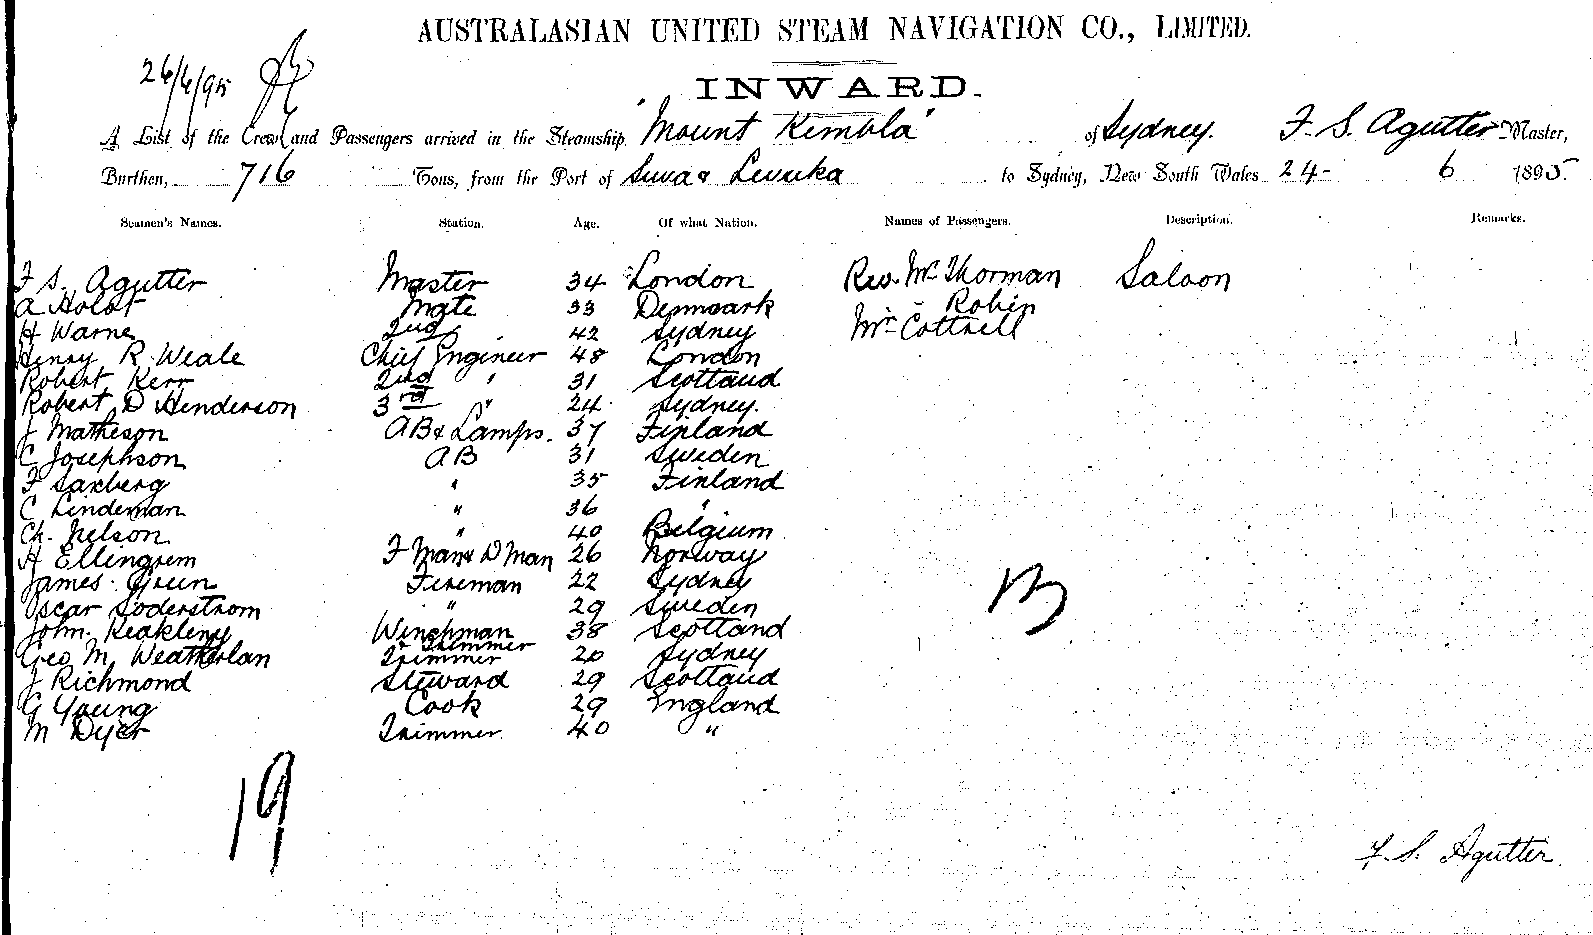 AUSTRALASIAN UNITED STEAM NAVIGATION CO., LIMITED.
26/6/95
INWARD.
A List of the Crew and Passengers arrived in the Steamship "Mount Kembla" of Sydney. F. S. Agutter Master,
Burthen, 716 Tons, from the Port of Suva & Levuka to Sydney, New South Wales 24 - 6 1895.
Seamen's Names. Station. Age. Of what Nation. Names of Passengers. Description. Remarks.
F S. Agutter Master 34 London Rev. Mr Thorman Saloon
A Holdt Mate 33 Denmark " Robin
H Warne 2nd " 42 Sydney Mr Cottrell
Henry R. Weale Chief Engineer 48 London
Robert Kerr 2nd " 31 Scotland
Robert D Henderson 3rd " 24 Sydney.
J Matheson AB & Lamps. 37 Finland
C Josephson AB 31 Sweden
F Saxberg " 35 Finland
C Lindeman " 36 "
Ch. Nelson " 40 Belgium
H Ellingsem F Man & D Man 26 Norway
James Green Fireman 22 Sydney
Oscar Soderstrom " 29 Sweden
John Winchman & Trimmer 38 Scotland
Geo M. Trimmer 20 Sydney
J Richmond Steward 29 Scotland
G Young Cook 29 England
M Dyer Trimmer 40 "
19
F. S. Agutter.